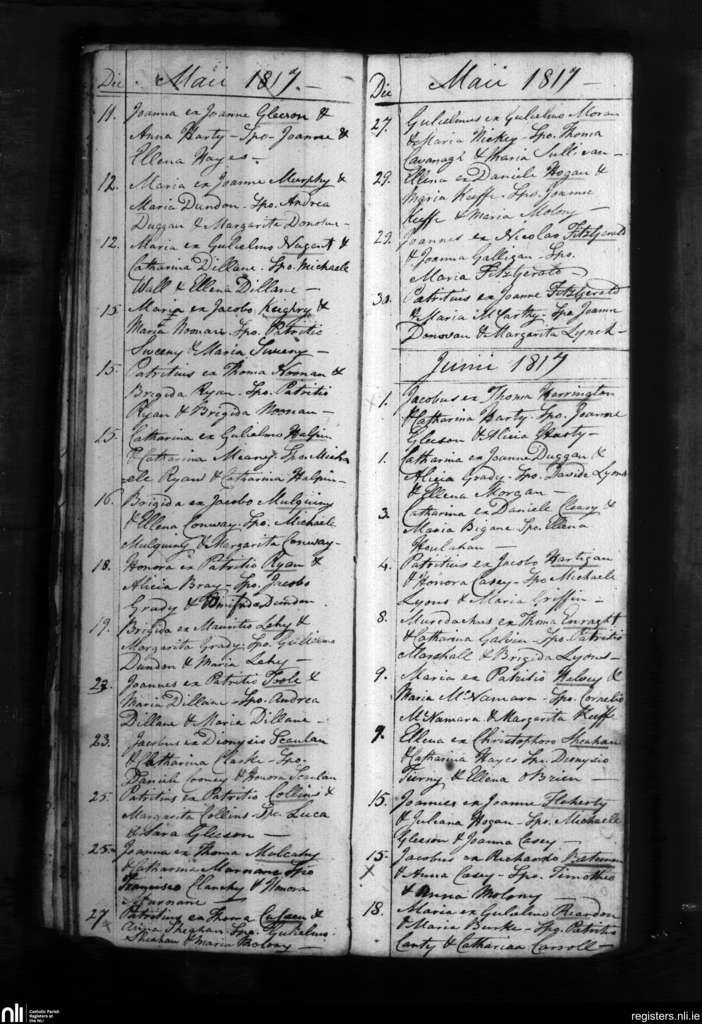 Die Maii 1817 -
11. Joanna ex Joanne Gleeson &
Anna Harty - Spo. Joanne &
Ellena Hayes -
12. Maria ex Joanne Murphy &
Maria Dundon - Spo. Andrea
Duggan & Margarita Donovan -
12. Maria ex Gulielmo Nugent &
Catharina Dillane - Spo. Michaele
Wall & Ellena Dillane -
15. Maria ex Jacobo Keighry &
Maria Noonan - Spo. Patritio
Sweeny & Maria Sweeny -
15. Patritius ex Thoma Noonan &
Brigida Ryan - Spo. Patritio
Ryan & Brigida Noonan -
25. Catharina ex Gulielmo Halpin
& Catharina Meany - Spo. Mich
ele Ryan & Catharina Halpin -
16. Brigida ex Jacobo Mulquiny
& Ellena Conway - Spo. Michaele
Mulquiny & Margarita Conway -
18. Honora ex Patritio Ryan &
Alicia Bray - Spo. Jacobo
Grady & Dundon
19. Brigida ex Mauritio Lehy &
Margarita Grady - Spo. Gulielmo
Dundon & Maria Lehy -
23. Joannes ex Patritio Toole &
Maria Dillane - Spo. Andrea
Dillane & Maria Dillane -
23. Jacobus ex Dionysio Scanlan
& Catharina Clarke - Spo.
Daniele Cooney & Honora Scanlan
25. Patritius ex Patritio Collins &
Margarita Collins Spo. Luca
& Sara Gleeson -
25 - Joanna ex Thoma Mulcahy
& Catharina Marnane Spo
Francisco Clanchy & Honora
Marnane -
27 Patritius ex Thoma &
Anna Sheahan - Spo. Gulielmo
Sheahan & Maria Molony -
Die Maii 1817 -
27. Gulielmus ex Gulielmo Moran
& Maria Hickey - Spo. Thoma
Cavanagh & Maria Sullivan -
29. Ellena ex Daniele Hogan &
Maria Keeffe - Spo. Joanne
Keeffe & Maria Molony -
29. Joannes ex Nicolao Fitzgerald
& Joanna Galligan - Spo.
Maria Fitzgerald -
30. Patritius ex Joanne Fitzgerald
& Maria McCarthy - Spo Joanne
Donovan & Margarita Lynch -
Junii 1817
1. Jacobus ex Thoma Harrington
& Catharina Harty - Spo. Joanne
Gleeson & Alicia Harty -
1. Catharina ex Joanne Duggan &
Alicia Grady - Spo. Davide Lyons
& Ellena Morgan -
3. Catharina ex Daniele Cleary &
Maria Bigane Spo. Ellena
Houlahan -
4. Patritius ex Jacobo Hartigan
& Honora Casey - Spo Michaele
Lyons & Maria Griffin -
8. Murdachus ex Thoma Enraght
& Catharina Galvin - Spo. Patritio
Marshall & Brigida Lyons -
9. Maria ex Patritio Kelvey &
Maria McNamara - Spo. Cornelio
McNamara & Margarita Keeff
9. Ellena ex Christophoro Sheahan
& Catharina Hayes Spo. Dionysio
Tierny & Ellena O'Brien -
15. Joannes ex Joanne Flaherty
& Juliana Hogan - Spo. Michaele
Gleeson & Joanna Casey -
15. Jacobus ex Richardo Bateman
x & Anna Casey - Spo. Timotheo
& Anna Molony -
18. Maria ex Gulielmo Reardon
& Maria Burke - Spo. Patritio
Canty & Catharina Carroll -
nli Catholic Parish
Registers at
the NLI
registers.nli.ie